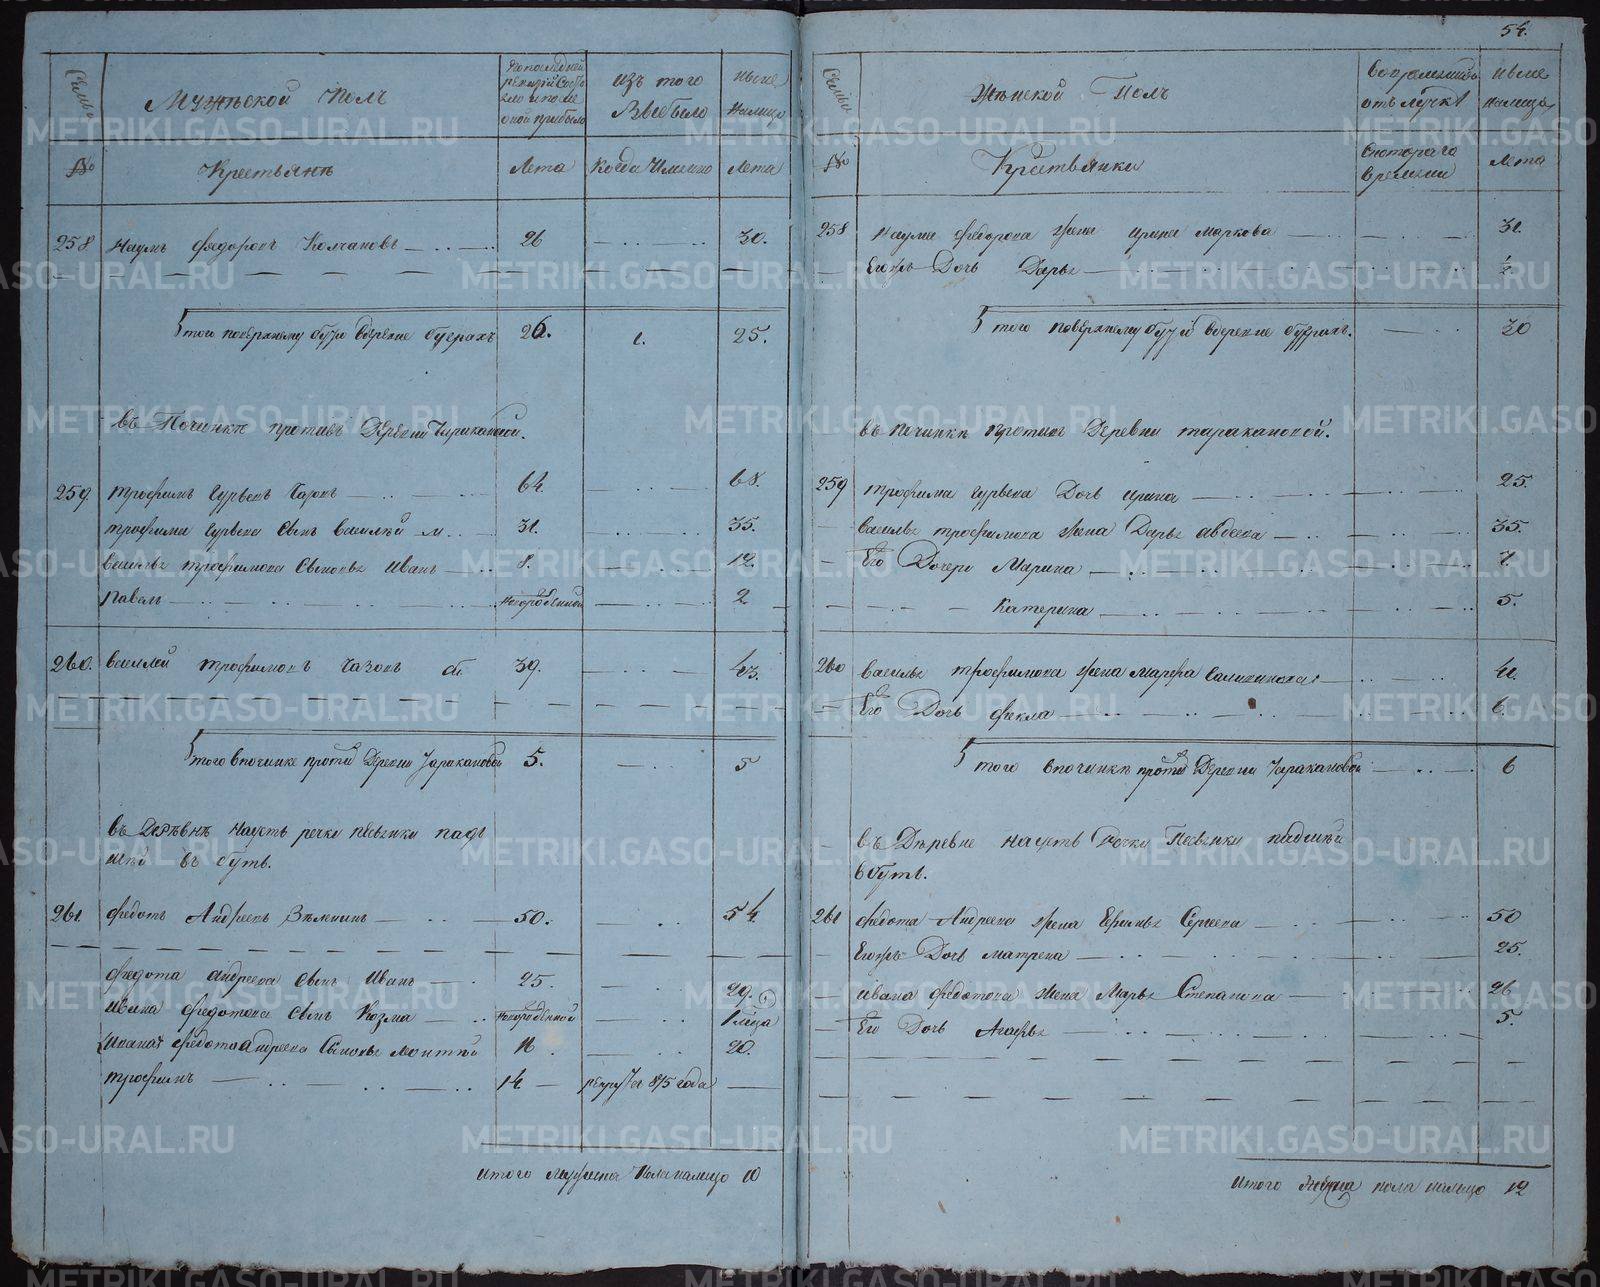 54.
Семьи
Мужеской Полъ
По последней ревизiи состояло и после оной прибыло
Изъ того Выбыло
Ныне налицо
№
Крестьянъ
Лета
Когда Именно
Лета
258 Наумъ Федоровъ Колчановъ 26 30.
Итого поверхнему бутu вдеревне 26. 1. 25.
въ Починкѣ противъ Деревни Таракановой.
259. Трофимъ Гурьевъ 64. 68.
Трофима Гурьева сынъ Василѣй м 31. 35.
Василья Трофимова сыновья Иванъ 8. 12.
Павелъ новорожденной 2
260. Василей Трофимовъ ст. 39. 43.
Итого впочинке против Деревни Таракановой 5. 5
въ Деревнѣ наусть речки
въ буть.
261. Федотъ Андреевъ 50. 54.
Федота Андреева сынъ Иванъ 25. 29.
Ивана Федотова сынъ Козма новорожденной
Федота Андреева сыновья 16. 20.
Трофимъ 14 рекрутъ 815 года
Итого Мужеска Пола налицо 10
Семьи
Женской Полъ
Во временной отлучке
Ныне налицо
№
Крестьянки
Скоторого времени
Лета
258 Наума Федорова жена Ирина Маркова 31.
Егожъ Дочь Дарья ½
Итого поверхнему вдеревне 30
въ починкѣ противъ Деревни Таракановой.
259 Трофима Гурьева Дочь Ирина 25.
Василья Трофимова жена Дарья Авдеева 35.
Его Дочери Марина 7.
Катерина 5.
260 Василья Трофимова жена Марфа 41.
Его Дочь Фекла 6.
Итого впочинкѣ против Деревни Таракановой 6
въ Деревне наусть речки
вбуть.
261 Федота Андреева жена Ефимья Сергеева 50
Егожъ Дочь Матрена 25.
Ивана Федотова жена Марья Степанова 26
Его Дочь Агафья 5.
Итого Женска пола налицо 12
METRIKI.GASO-URAL.RU